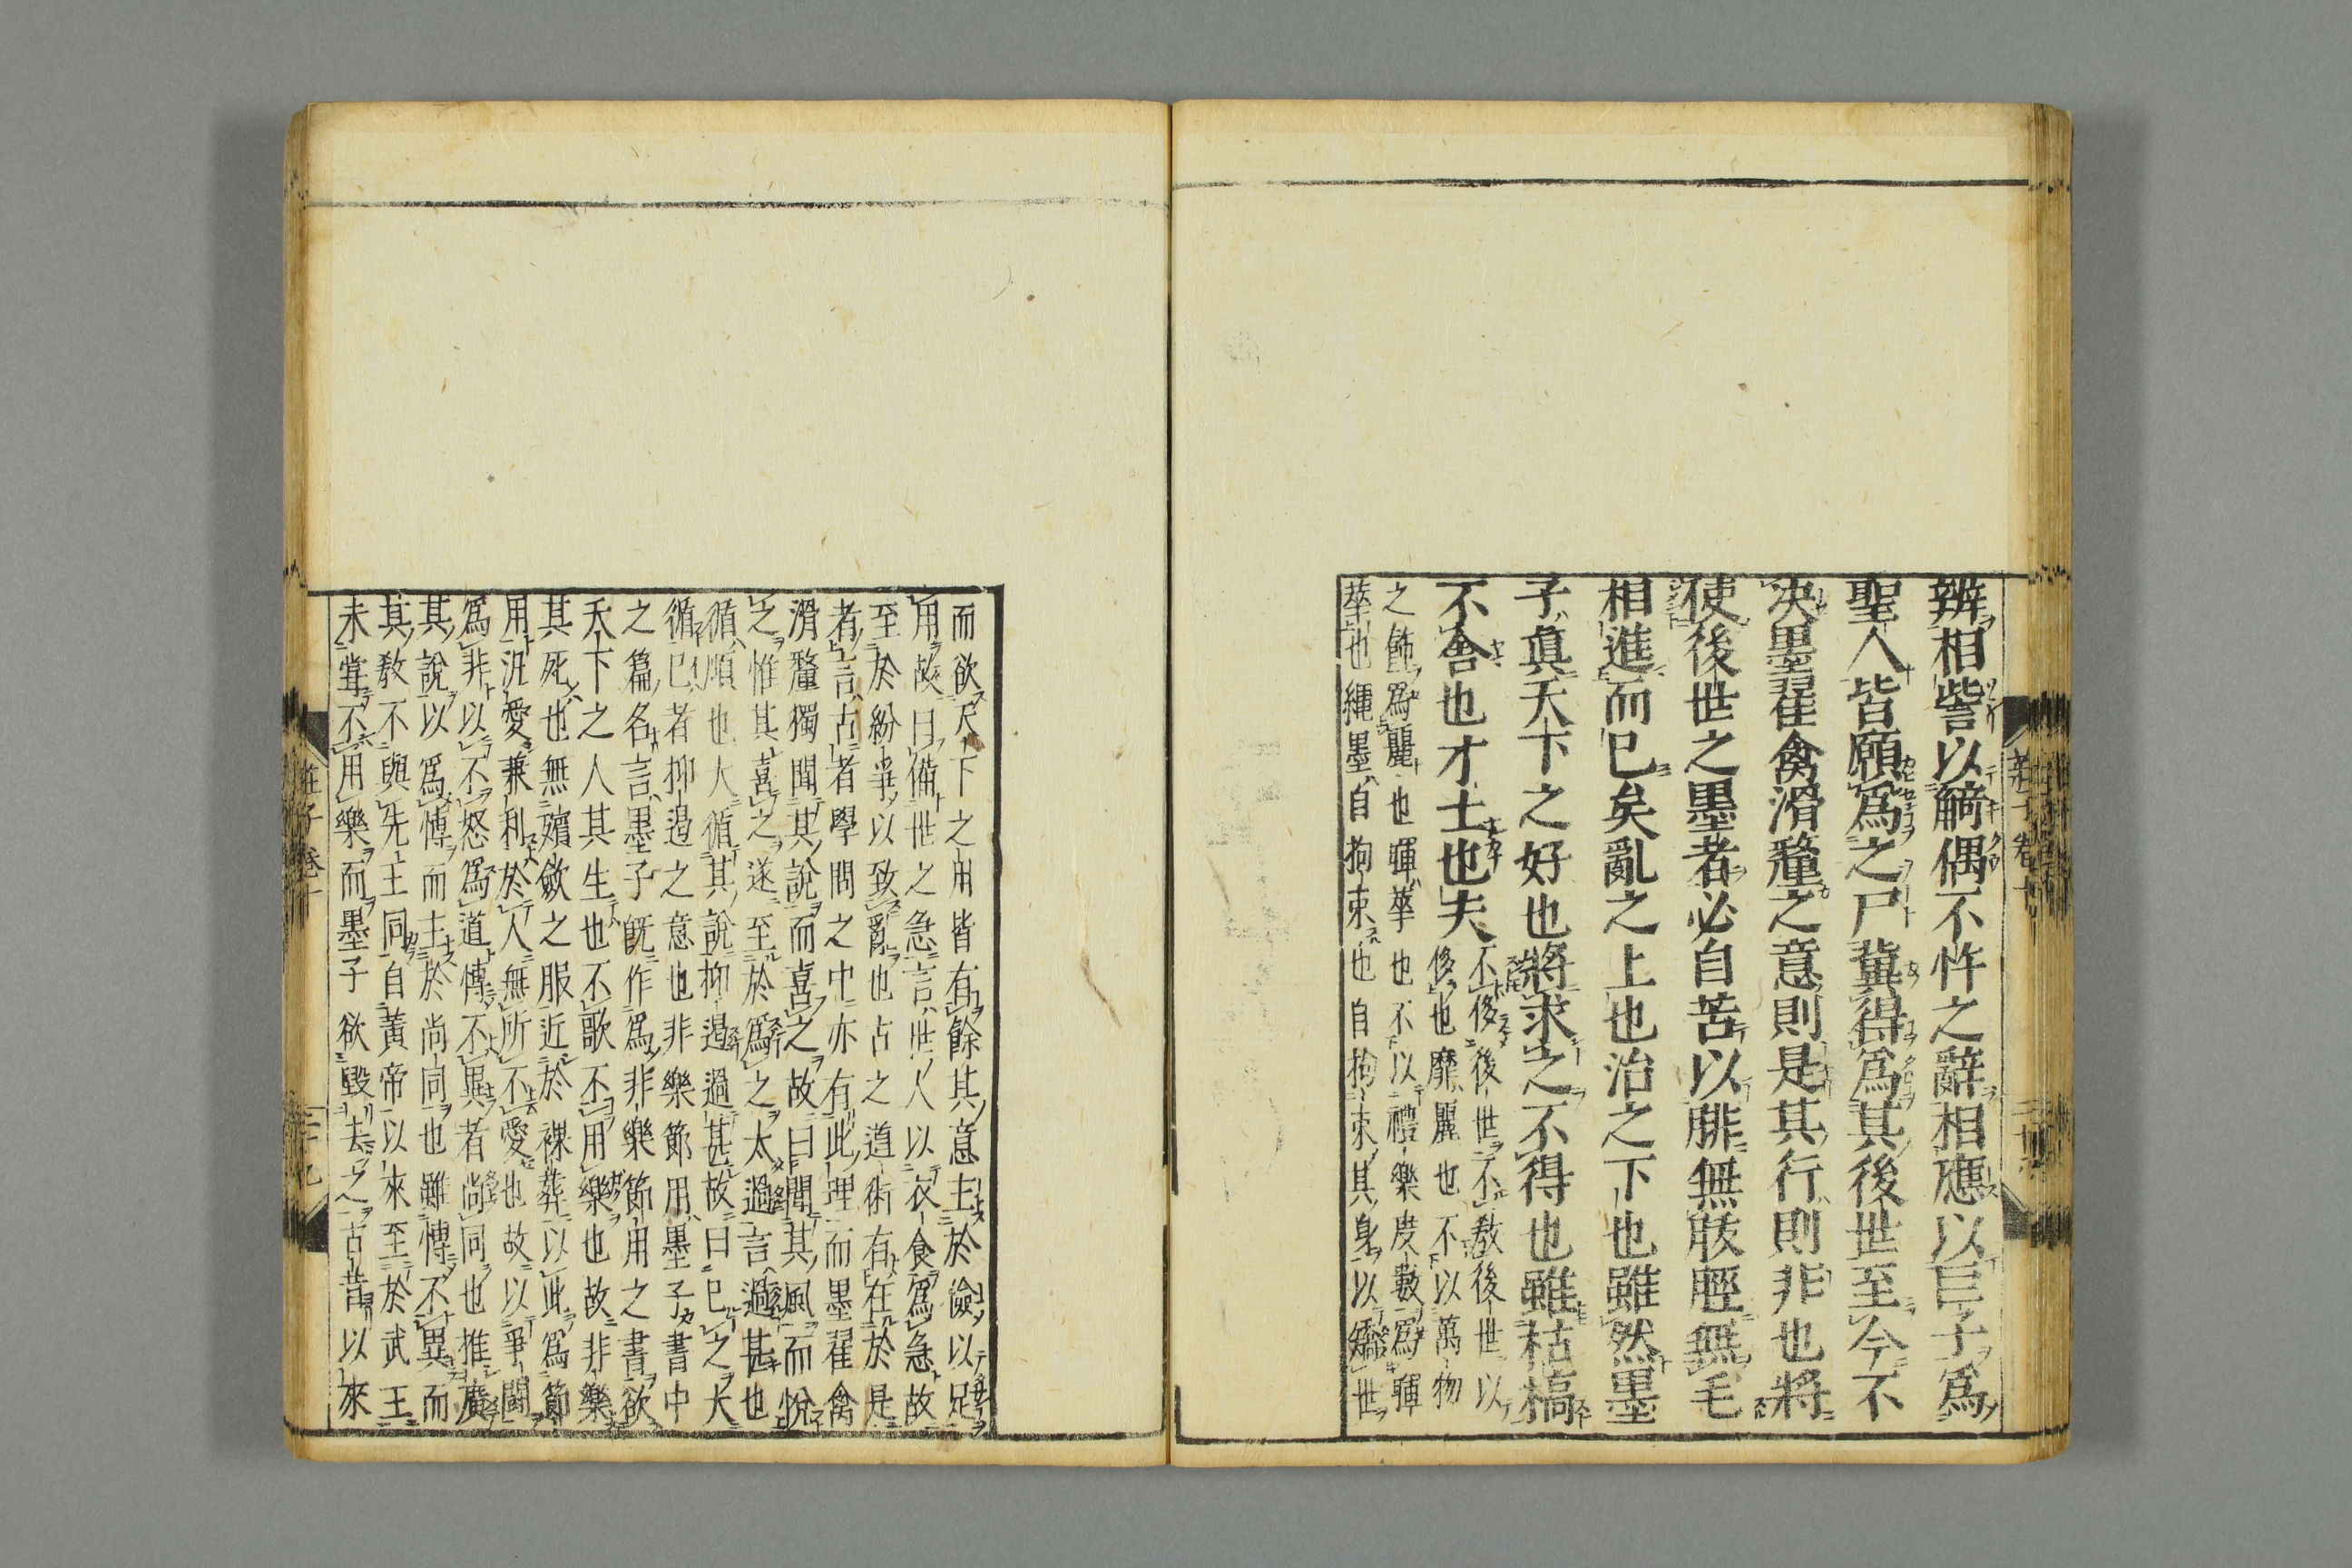 辨相訾以觭偶不忤之辭相應以巨子爲
聖人皆願爲之尸冀得爲其後世至今不
決墨翟禽滑釐之意則是其行則非也將
使後世之墨者必自苦以腓無胈脛無毛
相進而已矣亂之上也治之下也雖然墨
子眞天下之好也將求之不得也雖枯槁
不舍也才士也夫
不侈後世不敎後世以
侈也靡麗也不以萬物
之飾爲麗也暉華也不以禮樂度數爲暉
華也繩墨自拘束也自拘束其身以矯世
而欲天下之用皆有餘其意主於儉以足
用故曰備世之急言世人以衣食爲急故
至於紛爭以致亂也古之道術有在於是
者言古者學問之中亦有此理而墨翟禽
滑釐獨聞其說而喜之故曰聞其風而悅
之惟其喜之遂至於爲之太過言過甚也
循順也大循其說抑遏過甚故曰已之大
循已者抑遏之意也非樂節用墨子書中
之篇名言墨子旣作爲非樂節用之書欲
天下之人其生也不歌不用樂也故非樂
其死也無殯斂之服近於裸葬以此爲節
用汎愛兼利於人無所不愛也故以爭鬪
爲非以不怒爲道博不異者尚同也推廣
其說以爲博而主於尚同也雖博不異而
其敎不與先王同自黃帝以來至於武王
未嘗不用樂而墨子欲毀去之古昔以來
莊子卷十
二十九